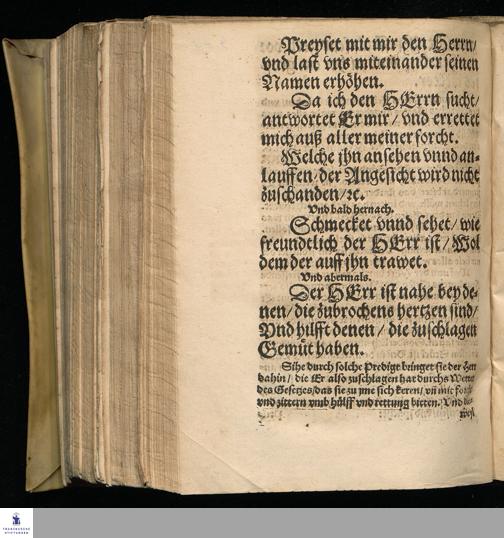 Preyset mit mir den Herrn/
vnd last vns miteinander seinen
Namen erhöhen.
Da ich den HErrn sucht/
antwortet Er mir/ vnd errettet
mich auß aller meiner forcht.
Welche jhn ansehen vnnd an-
lauffen/ der Angesicht wird nicht
zuschanden/ ꝛc.
Vnd bald hernach.
Schmecket vnnd sehet/ wie
freundtlich der HErr ist/ Wol
dem der auff jhn trawet.
Vnd abermals.
Der HErr ist nahe bey de-
nen/ die zubrochens hertzen sind/
Vnd hilfft denen/ die zuschlagen
Gemüt haben.
Sihe durch solche Predigt bringet sie der
dahin/ die Er also zuschlagen hat durchs
des Gesetzes/ das sie zu jme sich keren/ vñ mit
vnd zittern vmb hülff vnd rettung bitten. Vnd
FRANCKESCHE
STIFTUNGEN